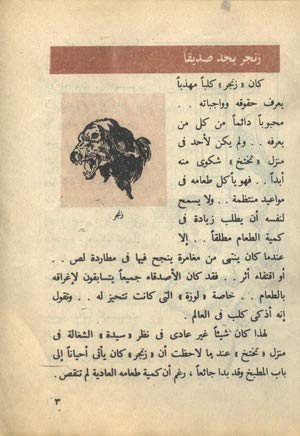 زنجر يجد صديقاً
كان « زنجر » كلباً مهذباً
يعرف حقوقه وواجباته . .
محبوباً دائماً من كل من
يعرفه . . ولم يكن لأحد فى
منزل « تختخ » شكوى منه
أبداً . . فهو يأكل طعامه فى
مواعيد منتظمة . . ولا يسمح
لنفسه أن يطلب زيادة فى
كمية الطعام مطلقاً . . إلا
زنجر
عندما كان ينتهى من مغامرة ينجح فيها فى مطاردة لص . .
أو اقتفاء أثر . . فقد كان الأصدقاء جميعاً يتسابقون لإغراقه
بالطعام . . خاصة « لوزة » التى كانت تتحيز له . . وتقول
إنه أذكى كلب فى العالم .
لهذا كان شيئاً غير عادى فى نظر « سيدة » الشغالة فى
منزل « تختخ » عندما لاحظت أن « زنجر » كان يأتى أحياناً إلى
باب المطبخ وقد بدا جائعاً ، رغم أن كمية طعامه العادية لم تنقص .
٣